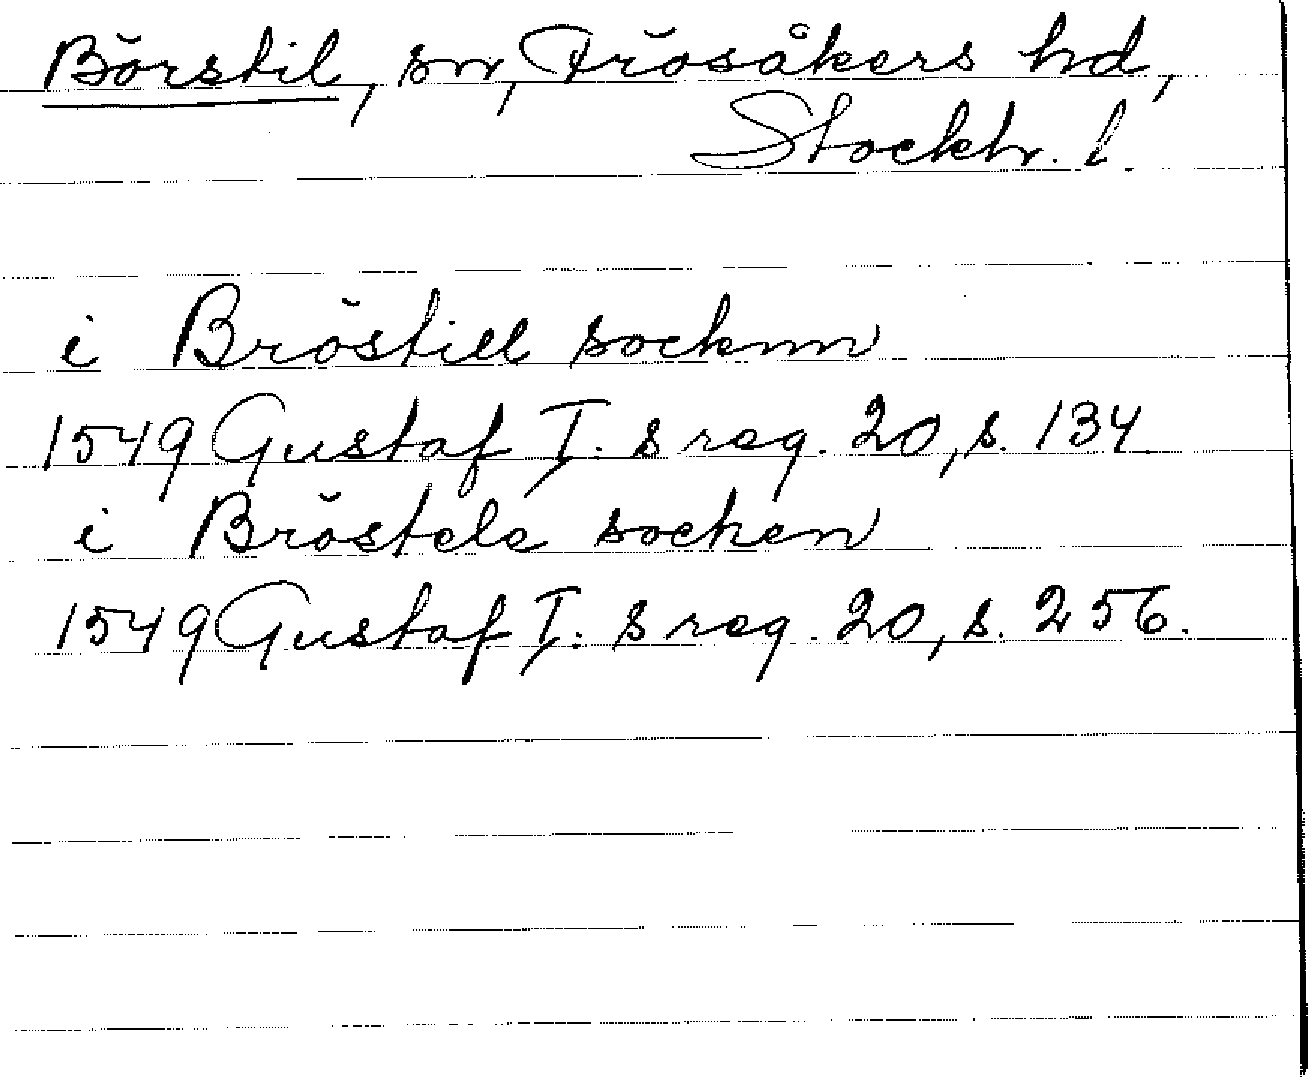 Börstil, sn, Frösåkers hd,
Stockh. l.
i Bröstill socknn
1549 Gustaf I. s reg. 20, s. 134.
i Bröstele socken
1549 Gustaf I. s reg. 20, s. 256.